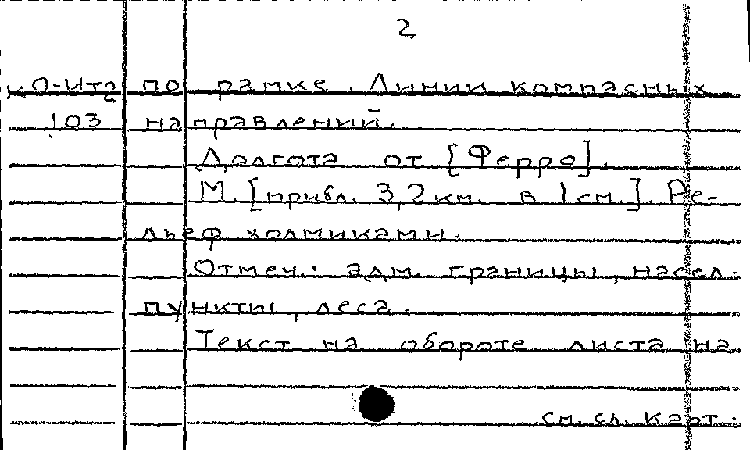 2
КО-Ит2 по рамке. Линии компасных
103 направлений.
Долгота от [Ферро].
М. [прибл. 3,2 км. в 1 см.]. Ре-
льеф холмиками.
Отмеч.: адм. границы, насел.
пункты, леса.
Текст на обороте листа на
см. сл. карт.